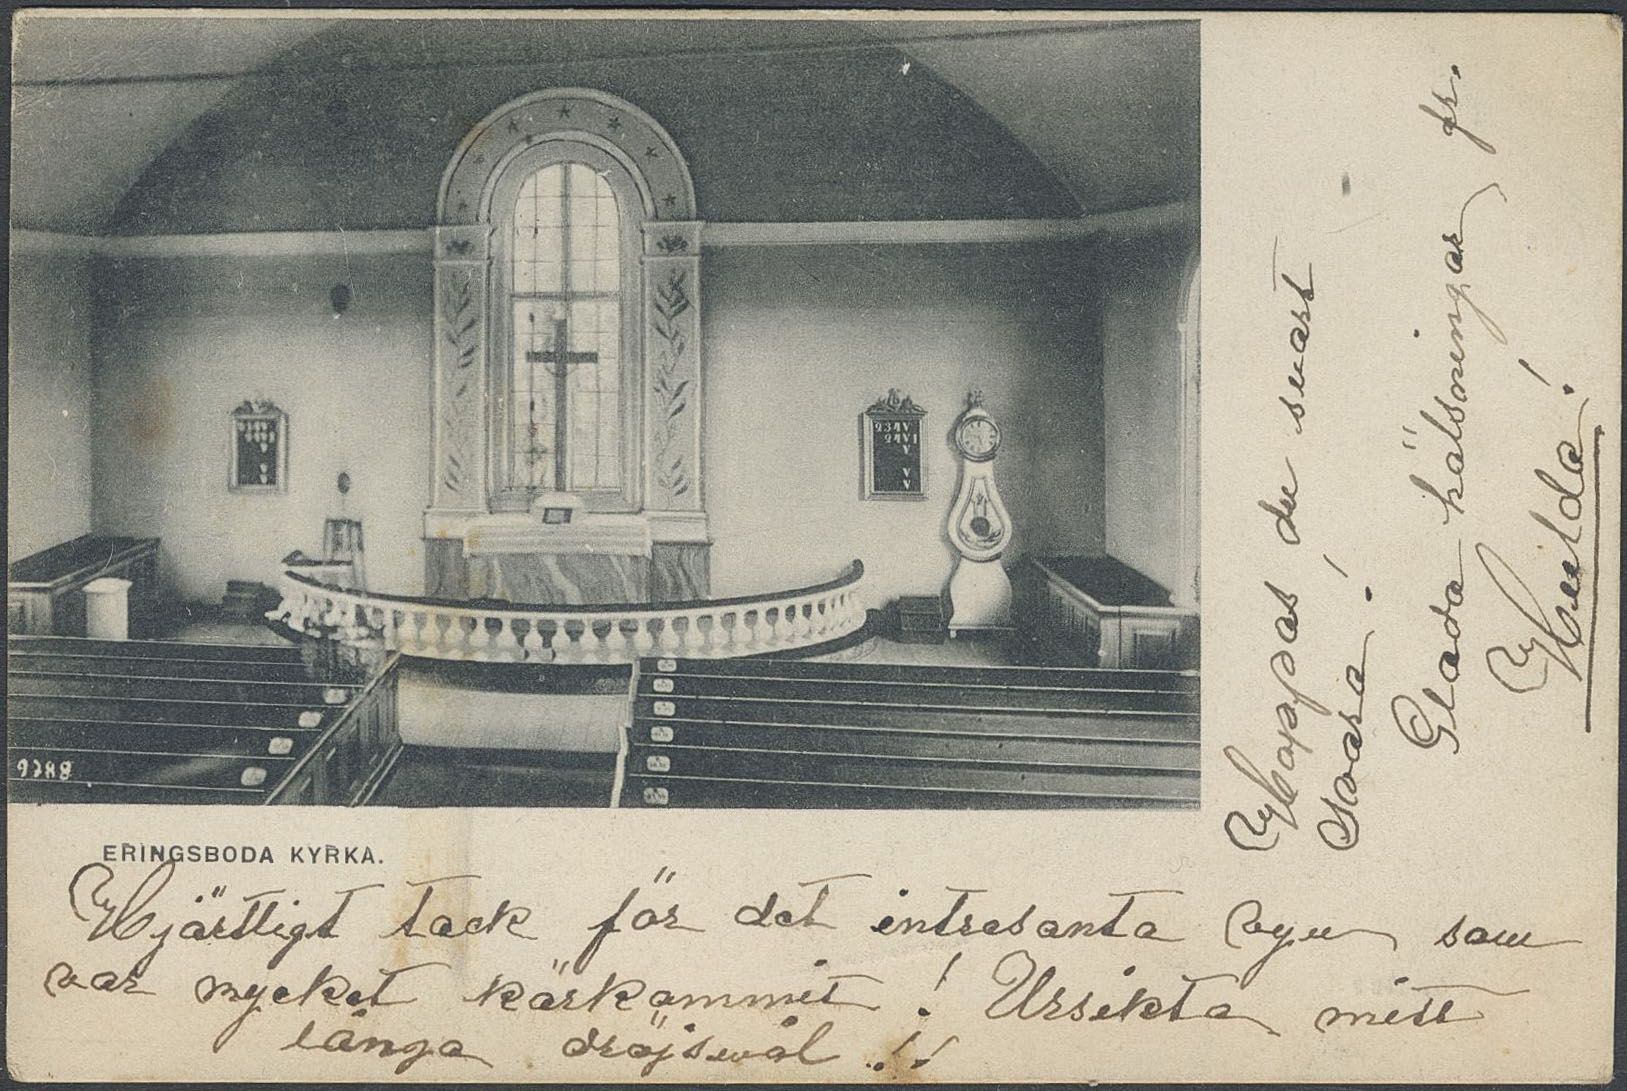 234V
24VI
V
V
V
9788
ERINGSBODA KYRKA.
Hjärtligt tack för det intresanta vyn som
var mycket kärkammit! Ursikta mitt
långa dröjsmål!!
Hoppas du snart
svara!
Glada hälsningar fr.
Hulda!